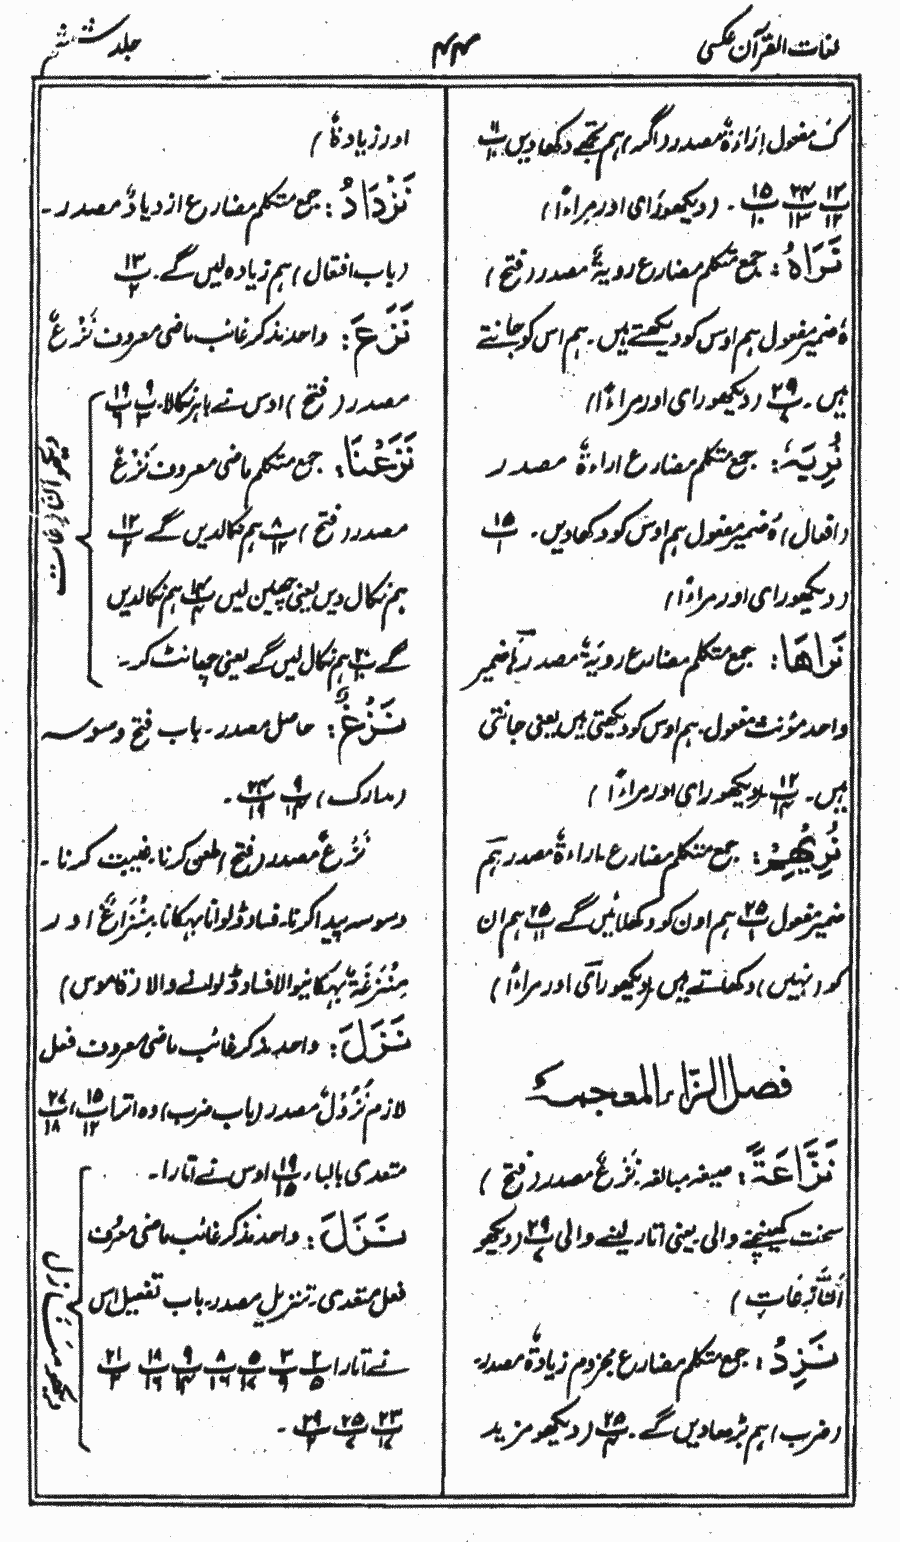 لغات القرآن عکسی
۴۴
جلد ششم
کَ مفعول اِرَاءَۃٌ مصدر (اگر) ہم تجھے دکھادیں ۱۱/۱۰
۱۳/۱۲ ۲۴/۱۳ ۱۵/۱۰ ۔ (دیکھو رَای اور مِراءً ا)
نَرَاہُ : جمع متکلم مضارع رویۃٌ مصدر (فتح)
ہٗ ضمیر مفعول ہم اوس کو دیکھتے ہیں ۔ ہم اس کو جانتے
ہیں ۔ ۲۹/۷ (دیکھو رای اور مراءً ا)
نُرِیَہٗ : جمع متکلم مضارع اراءۃٌ مصدر
(افعال) ہٗ ضمیر مفعول ہم اوس کو دکھادیں ۔ ۱۵/۱
(دیکھو رای اور مراءً ا)
نَرَاھَا : جمع متکلم مضارع رویَۃٌ مصدر ہَا ضمیر
واحد مؤنث مفعول ۔ ہم اوس کو دیکھتی ہیں یعنی جانتی
ہیں ۔ ۱۲/۱۴ (دیکھو رای اور مراءً ا)
نُرِیْھِمْ : جمع متکلم مضارع ۔ اراءۃٌ مصدر ہم
ضمیر مفعول ۲۵/۱ ہم اون کو دکھلائیں گے ۲۵/۱۱ ہم ان
کو (نہیں) دکھلاتے ہیں (دیکھو رآی اور مراءً ا)
فصل الزاء المعجمۃ
نَزَّاعَۃً : صیغہ مبالغہ ۔ نَزْعٌ مصدر (فتح)
سخت کھینچنے والی یعنی اتار لینے والی ۲۹/۷ (دیکھو
اَلنَّازِعَاتِ)
نَزِدْ : جمع متکلم مضارع مجزوم زیادۃٌ مصدر
(ضرب) ہم بڑھادیں گے ۔ ۲۵/۴ (دیکھو مزید
اور زیادۃ)
نَزْدَادُ : جمع متکلم مضارع ازدیادٌ مصدر ۔
(باب افتعال) ہم زیادہ لیں گے ۔ ۱۳/۲
نَزَعَ : واحد مذکر غائب ماضی معروف نَزْعٌ
مصدر (فتح) اوس نے باہر نکالا ۔ ۹/۳ ۱۹/۶
نَزَعْنَا : جمع متکلم ماضی معروف نَزْعٌ
مصدر (فتح) ۸/۱۲ ہم نکالدیں گے ۱۲/۲
ہم نکال دیں یعنی چھین لیں ۱۴/۴ ہم نکالدیں
گے ۲۰ ہم نکال لیں گے یعنی چھانٹ کر ۔
نَزْغٌ : حاصل مصدر ۔ باب فتح وسوسہ
(مدارک) ۹/۱۴ ۲۴/۱۹ ۔
نَزْغٌ مصدر (فتح) طعن کرنا ۔ غیبت کرنا ۔
وسوسہ پیدا کرنا ۔ فساد ڈلوانا بہکانا ۔ مِنْزَاغٌ اور
مِنْزَغَۃٌ بہکانیوالا فساد ڈلوانے والا (قاموس)
نَزَلَ : واحد مذکر غائب ماضی معروف فعل
لازم نُزُوْلٌ مصدر (باب ضرب) وہ اترا ۱۵/۱۲ ، ۲۷/۱۸
متعدی بالباء ۱۹/۱۵ اوس نے اتارا ۔
نَزَّلَ : واحد مذکر غائب ماضی معروف
فعل متعدی ۔ تنزیل مصدر ۔ باب تفعیل اس
نے اتارا ۲/۵ ۳/۹ ۵/۱۷ ۸/۱۶ ۹/۱۴ ۱۸/۱۶ ۲۱/۳
۲۳/۱۷ ۲۵/۷ ۲۹/۲ ۔